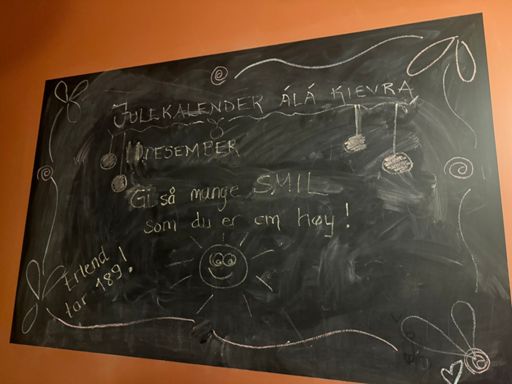 JULEKALENDER ÁLÁ KIEVRA
DESEMBER
Gi så mange SMIL
som du er cm høy!
Erlend
tar 189!